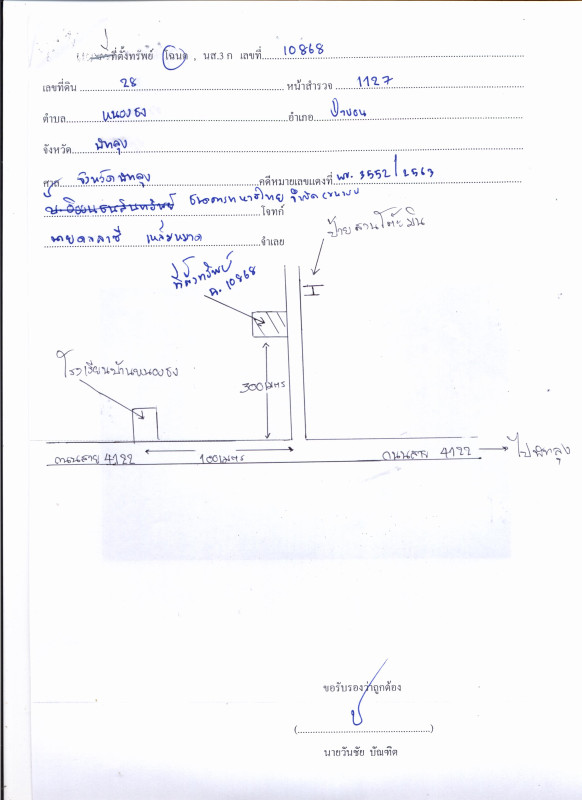 ที่ตั้งทรัพย์ โฉนด , นส.3 ก เลขที่ 10868
เลขที่ดิน 28 หน้าสำรวจ 1127
ตำบล หนองธง อำเภอ ป่าบอน
จังหวัด พัทลุง
ศาล จังหวัดพัทลุง คดีหมายเลขแดงที่ ผบ. 3552/2563
ธนาคารทหารไทย จำกัด (มหาชน) โจทก์
นาย เหล็มหมาด จำเลย
ป้ายสวนโต๊ะมีน
ที่ตั้งทรัพย์
ฉ. 10868
โรงเรียนบ้านหนองธง
300 เมตร
ถนนสาย 4122 100 เมตร ถนนสาย 4122 ไปพัทลุง
ขอรับรองว่าถูกต้อง
(..........)
นายวันชัย บัณฑิต